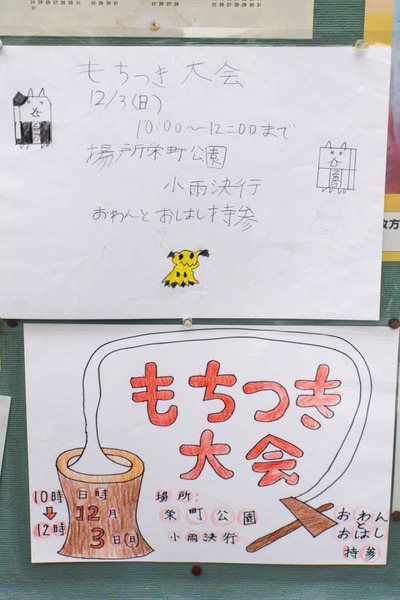 もちつき大会
12/3(日)
10:00〜12:00まで
場所栄町公園
小雨決行
おわんとおはし持参
もちつき
大会
10時
↓
12時
日時
12月
3日(日)
場所:
栄町公園
小雨決行
おわん
と
おはし
持参